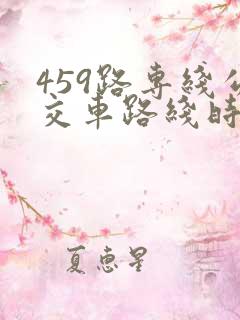 459路专綫公
交車路綫時
夏惠星